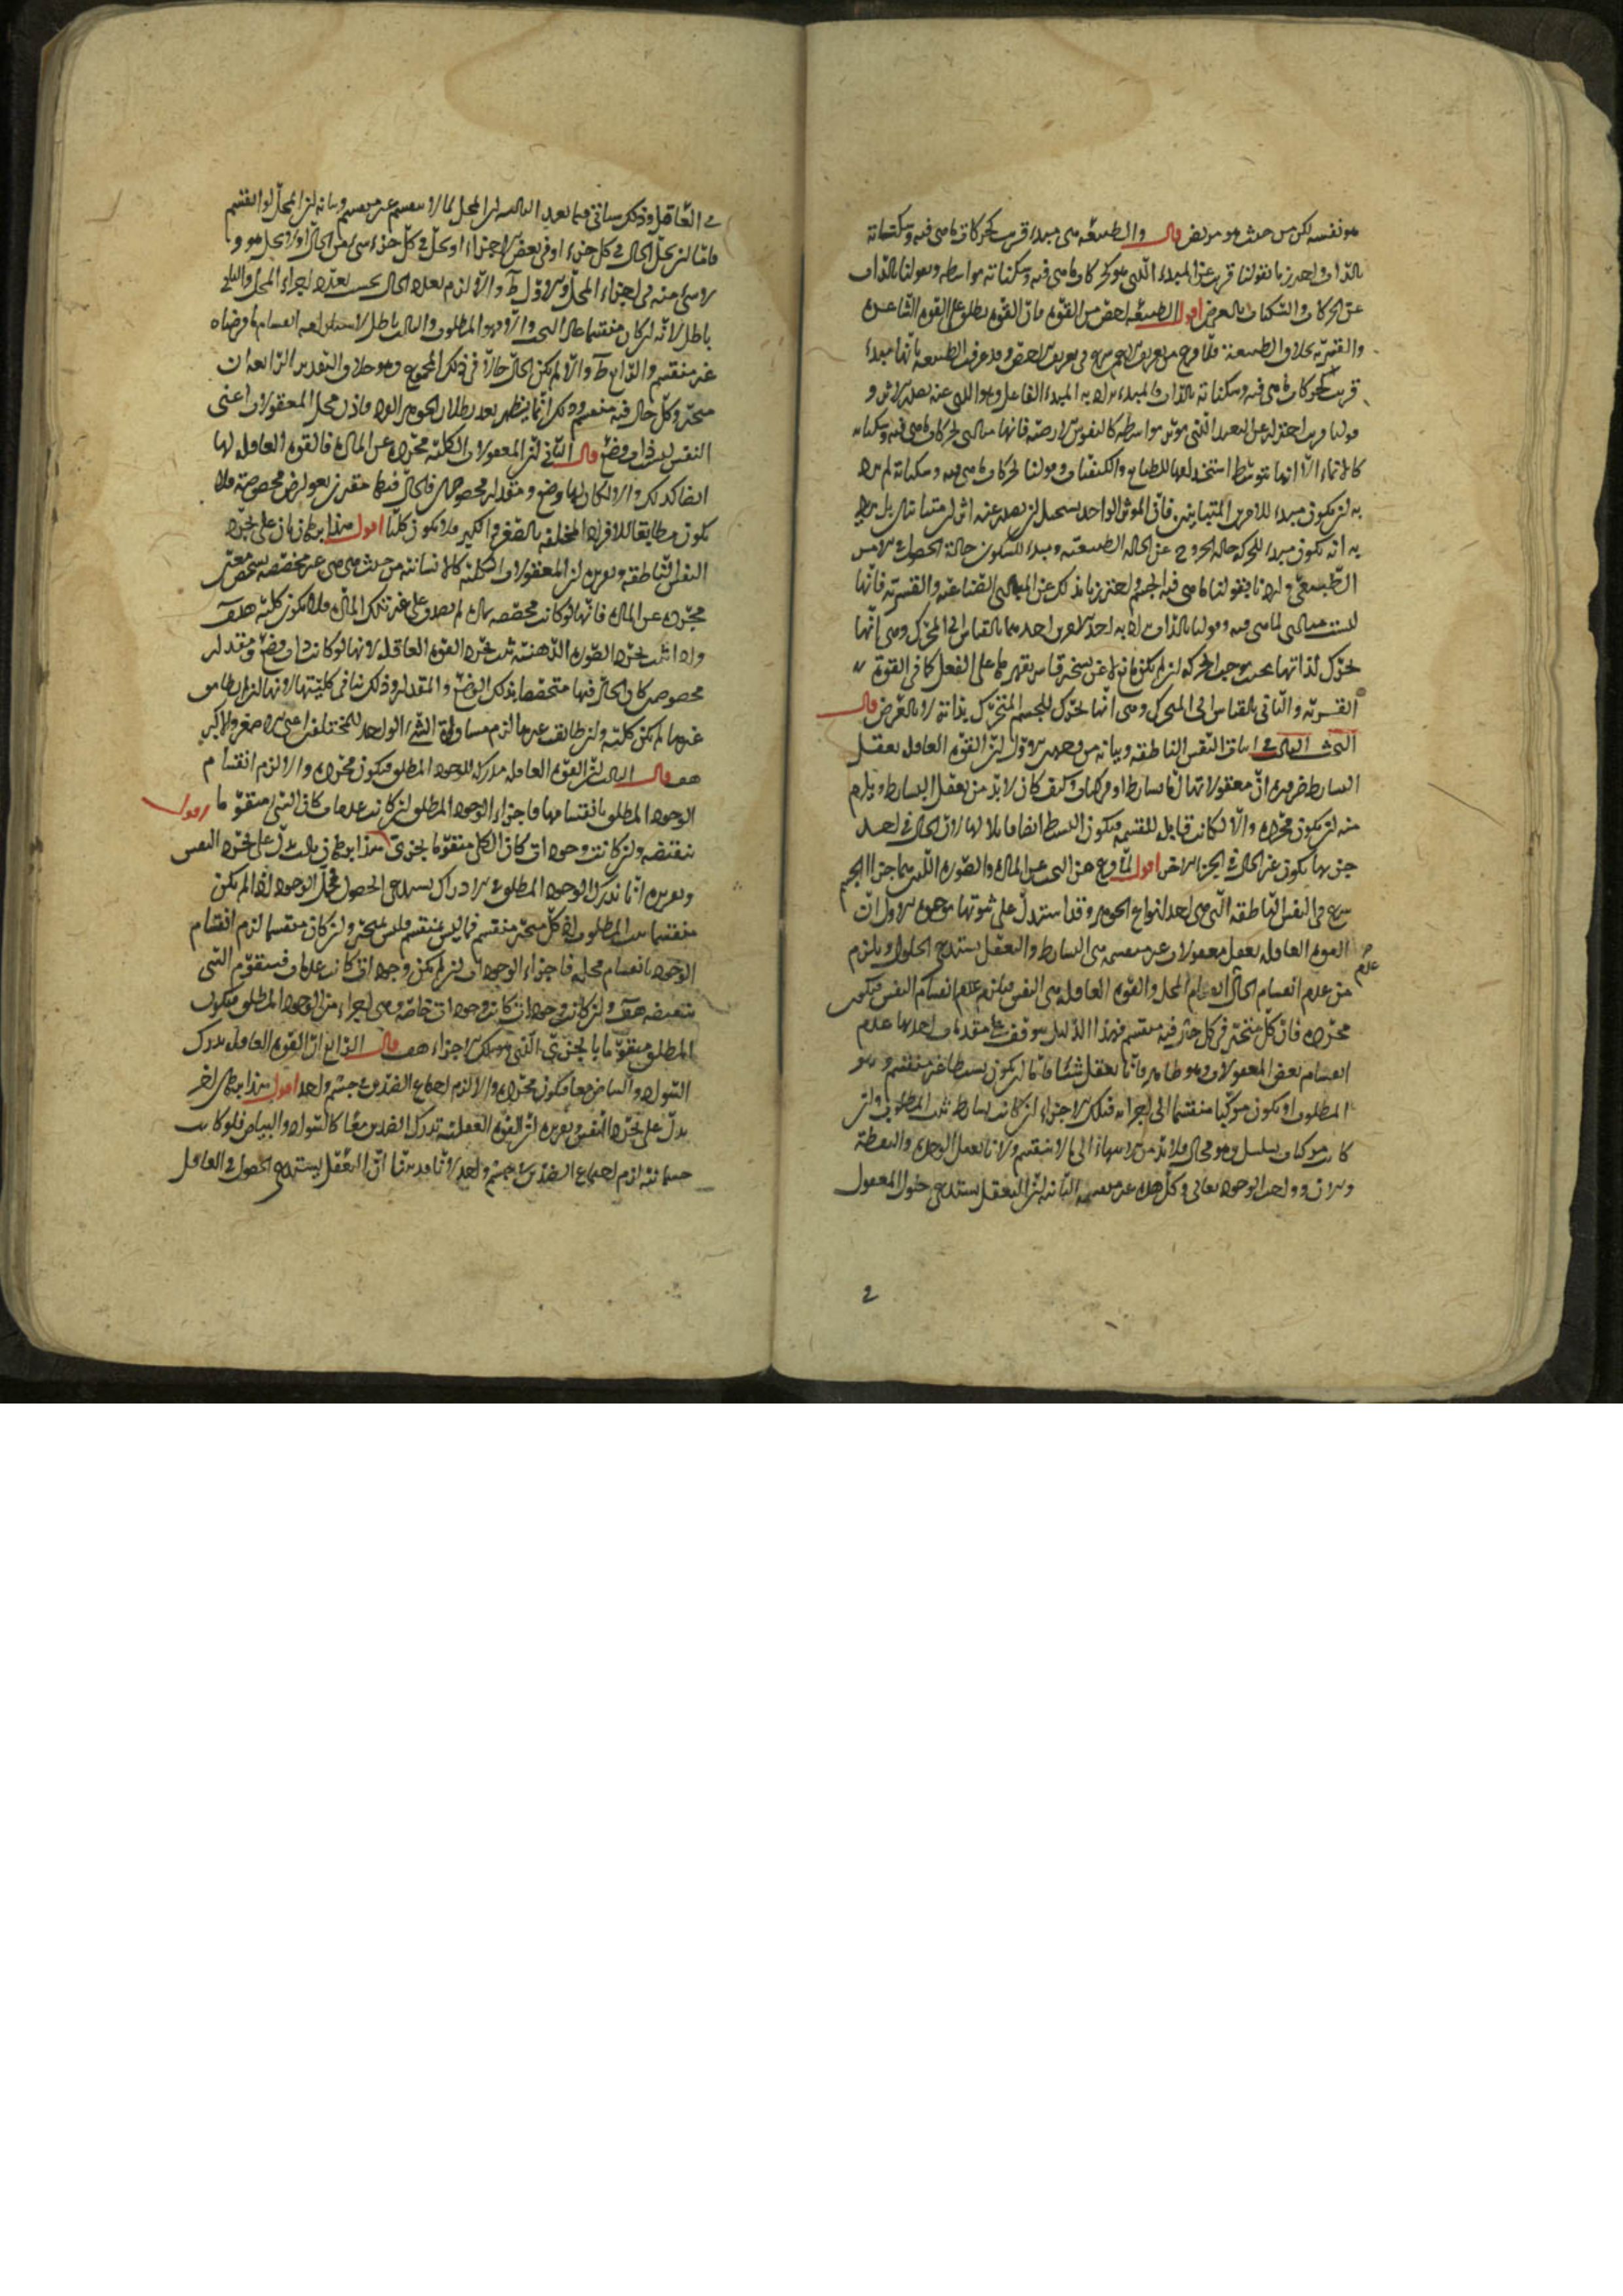 هو نفسه لكن من حيث هو مريض قال والطبيعة هي مبدأ قريب لحركات ما هي فيه وسكناته
بالذات واحترزنا بقولنا قريب عن المبدأ الذي هو لحركات ما هي فيه وسكناته بواسطة وبقولنا بالذات
عن الحركات والسكنات بالعرض اقول الطبيعة اخص من القوة فان القوة تطلق على القوة الشاعرة
والقسرية بخلاف الطبيعة فلما فرغ من تعريف الاعم شرع في تعريف الاخص وقد عرف الطبيعة بانها مبدأ
قريب لحركات ما هي فيه وسكناته بالذات فالمبدأ يراد به المبدأ الفاعلي وهو الذي عنه يصدر الاثر و
قولنا قريب احتراز عن البعيد الذي يؤثر بواسطة كالنفوس الارضية فانها مبادي لحركات ما هي فيه وسكناته
كالانماء الا انها بتوسط استخدامها للطبايع والكيفيات وقولنا لحركات ما هي فيه وسكناته لم يرد
به ان يكون مبدأ للامرين المتباينين فان المؤثر الواحد يستحيل ان يصدر عنه اثران متباينان بل يريد
به انه يكون مبدأ للحركة حالة الخروج عن الحالة الطبيعية ومبدأ للسكون حالة الحصول
الطبيعي و بقولنا ما هي فيه الجسم واحترزنا بذلك عن المبادي الصناعية والقسرية فانها
ليست مبادي لما هي فيه وقولنا بالذات يراد به احد الامرين احدهما بالقياس الى المحرك وهي انها
تحرك لذاتها بحيث يوجب الحركة ان لم يكن مانع لا عن تسخير قاسر يقهرها على الفعل كما في القوة
القسرية والثاني بالقياس الى المتحرك وهي انها تحرك للجسم المتحرك بذاته لا بالعرض قال
البحث الثالث في اثبات النفس الناطقة وبيانه من وجوه الاول ان القوة العاقلة تعقل
البسايط ضرورة ان معقولاتها اما بسايط او مركبات وكيف كان لا بد من تعقل البسايط ويلزم
منه ان يكون مجردة والا لكانت قابلة للقسمة فيكون البسيط ايضا قابلا لها لان الحال في احد
جزئيها يكون غير الحال في الجزء الاخر اقول لما فرغ عن البحث عن المادة والصورة اللتين هما جزءا الجسم
شرع في النفس الناطقة التي هي احد انواع الجوهر وقد استدل على ثبوتها بوجوه الاول ان
القوة العاقلة تعقل معقولات غير منقسمة هي البسايط والتعقل يستدعي الحلول ويلزم
من عدم انقسام الحال عدم انقسام المحل والقوة العاقلة هي النفس فيلزم عدم انقسام النفس فيكون
مجردة فان كل متحيز فكل حال فيه منقسم فهذا الدليل يتوقف على مقدمات احدها عدم
انقسام بعض المعقولات وهو ظاهر فانا نعقل شيئا فاما ان يكون بسيطا غير منقسم وهو
المطلوب او يكون مركبا منقسما الى اجزاء فتلك الاجزاء ان كانت بسايط ثبت المطلوب وان
كانت مركبات تسلسل وهو محال فلا بد من الانتهاء الى ما لا ينقسم ولانا نعقل الوحدة والنقطة
والآن وواجب الوجود تعالى وكل هذه غير منقسمة الثانية ان التعقل يستدعي حلول المعقول
في العاقل وذلك سيأتي فيما بعد الثالثة ان المحل لما لا ينقسم غير منقسم وبيانه ان المحل لو انقسم
فاما ان يحل الحال في كل جزء او في بعض الاجزاء او يحل في كل جزء شيء من الحال او لا يحل هو و
لا شيء منه في اجزاء المحل والاول ط والا لزم تعدد الحال بحسب تعدد اجزاء المحل والثاني
باطل لانه ان كان منقسما عاد البحث والا فهو المطلوب والثالث باطل لاستلزامه انقسام ما فرضناه
غير منقسم والرابع ط والا لم يكن الحال حالا في ذلك المجموع وهو خلاف التقدير الرابعة ان
متحيز وكل حال فيه منقسم وذلك انما يظهر بعد بطلان الجوهر الفرد فاذن محل المعقولات اعني
النفس ليس بذات وضع قال الثاني ان المعقولات الكلية مجردة عن المادة فالقوة العاقلة لها
ايضا كذلك والا لكان لها وضع ومقدار مخصوصان فالحال فيها مقترن بعوارض مخصوصة فلا
يكون مطابقا للافراد المختلفة بالصغر والكبر فلا يكون كليا اقول هذا برهان ثان على تجرد
النفس الناطقة وتقريره ان المعقولات الكلية كالانسانية من حيث هي هي غير مختصة بشخص معين
مجردة عن المادة فانها لو كانت مختصة بمادة لم تصدق على غير تلك المادة فلا تكون كلية هف
واذا ثبت تجرد الصورة الذهنية ثبت تجرد القوة العاقلة لانها لو كانت ذات وضع ومقدار
مخصوص كان الحال فيها متخصصا بذلك الوضع والمقدار وذلك ينافي كليتها لانها ان لم تطابق
غيرها لم يكن كلية وان طابقت غيرها لزم مساواة الشيء الواحد للمختلفين اعني الاصغر والاكبر
هف قال الثالث ان القوة العاقلة مدركة للوجود المطلق فيكون مجردة والا لزم انقسام
الوجود المطلق بانقسامها فاجزاء الوجود المطلق ان كانت عدمات كان الشيء متقوما
بنقيضه وان كانت وجودات كان الكلي متقوما بجزئي اقول هذا برهان ثالث يدل على تجرد النفس
وتقريره انا ندرك الوجود المطلق والادراك يستدعي الحصول فمحل الوجود اذا لم يكن
منقسما ثبت المطلوب اذ كل متحيز منقسم فما ليس بمنقسم فليس بمتحيز وان كان منقسما لزم انقسام
الوجود بانقسام محله فاجزاء الوجود ان لم يكن وجودات كانت عدمات فيتقوم الشيء
بنقيضه هف وان كانت وجودات كانت وجودات خاصة وهي اجزاء من الوجود المطلق فيكون
المطلق متقوما بالجزئي الذي هو تلك الاجزاء هف قال الرابع ان القوة العاقلة تدرك
السواد والبياض معا فيكون مجردة والا لزم اجتماع الضدين في جسم واحد اقول هذا برهان اخر
يدل على تجرد النفس وتقريره ان القوة العقلية تدرك الضدين معا كالسواد والبياض فلو كانت
جسمانية لزم اجتماع الضدين في جسم واحد لانا قد بينا ان التعقل يستدعي الحصول في العاقل